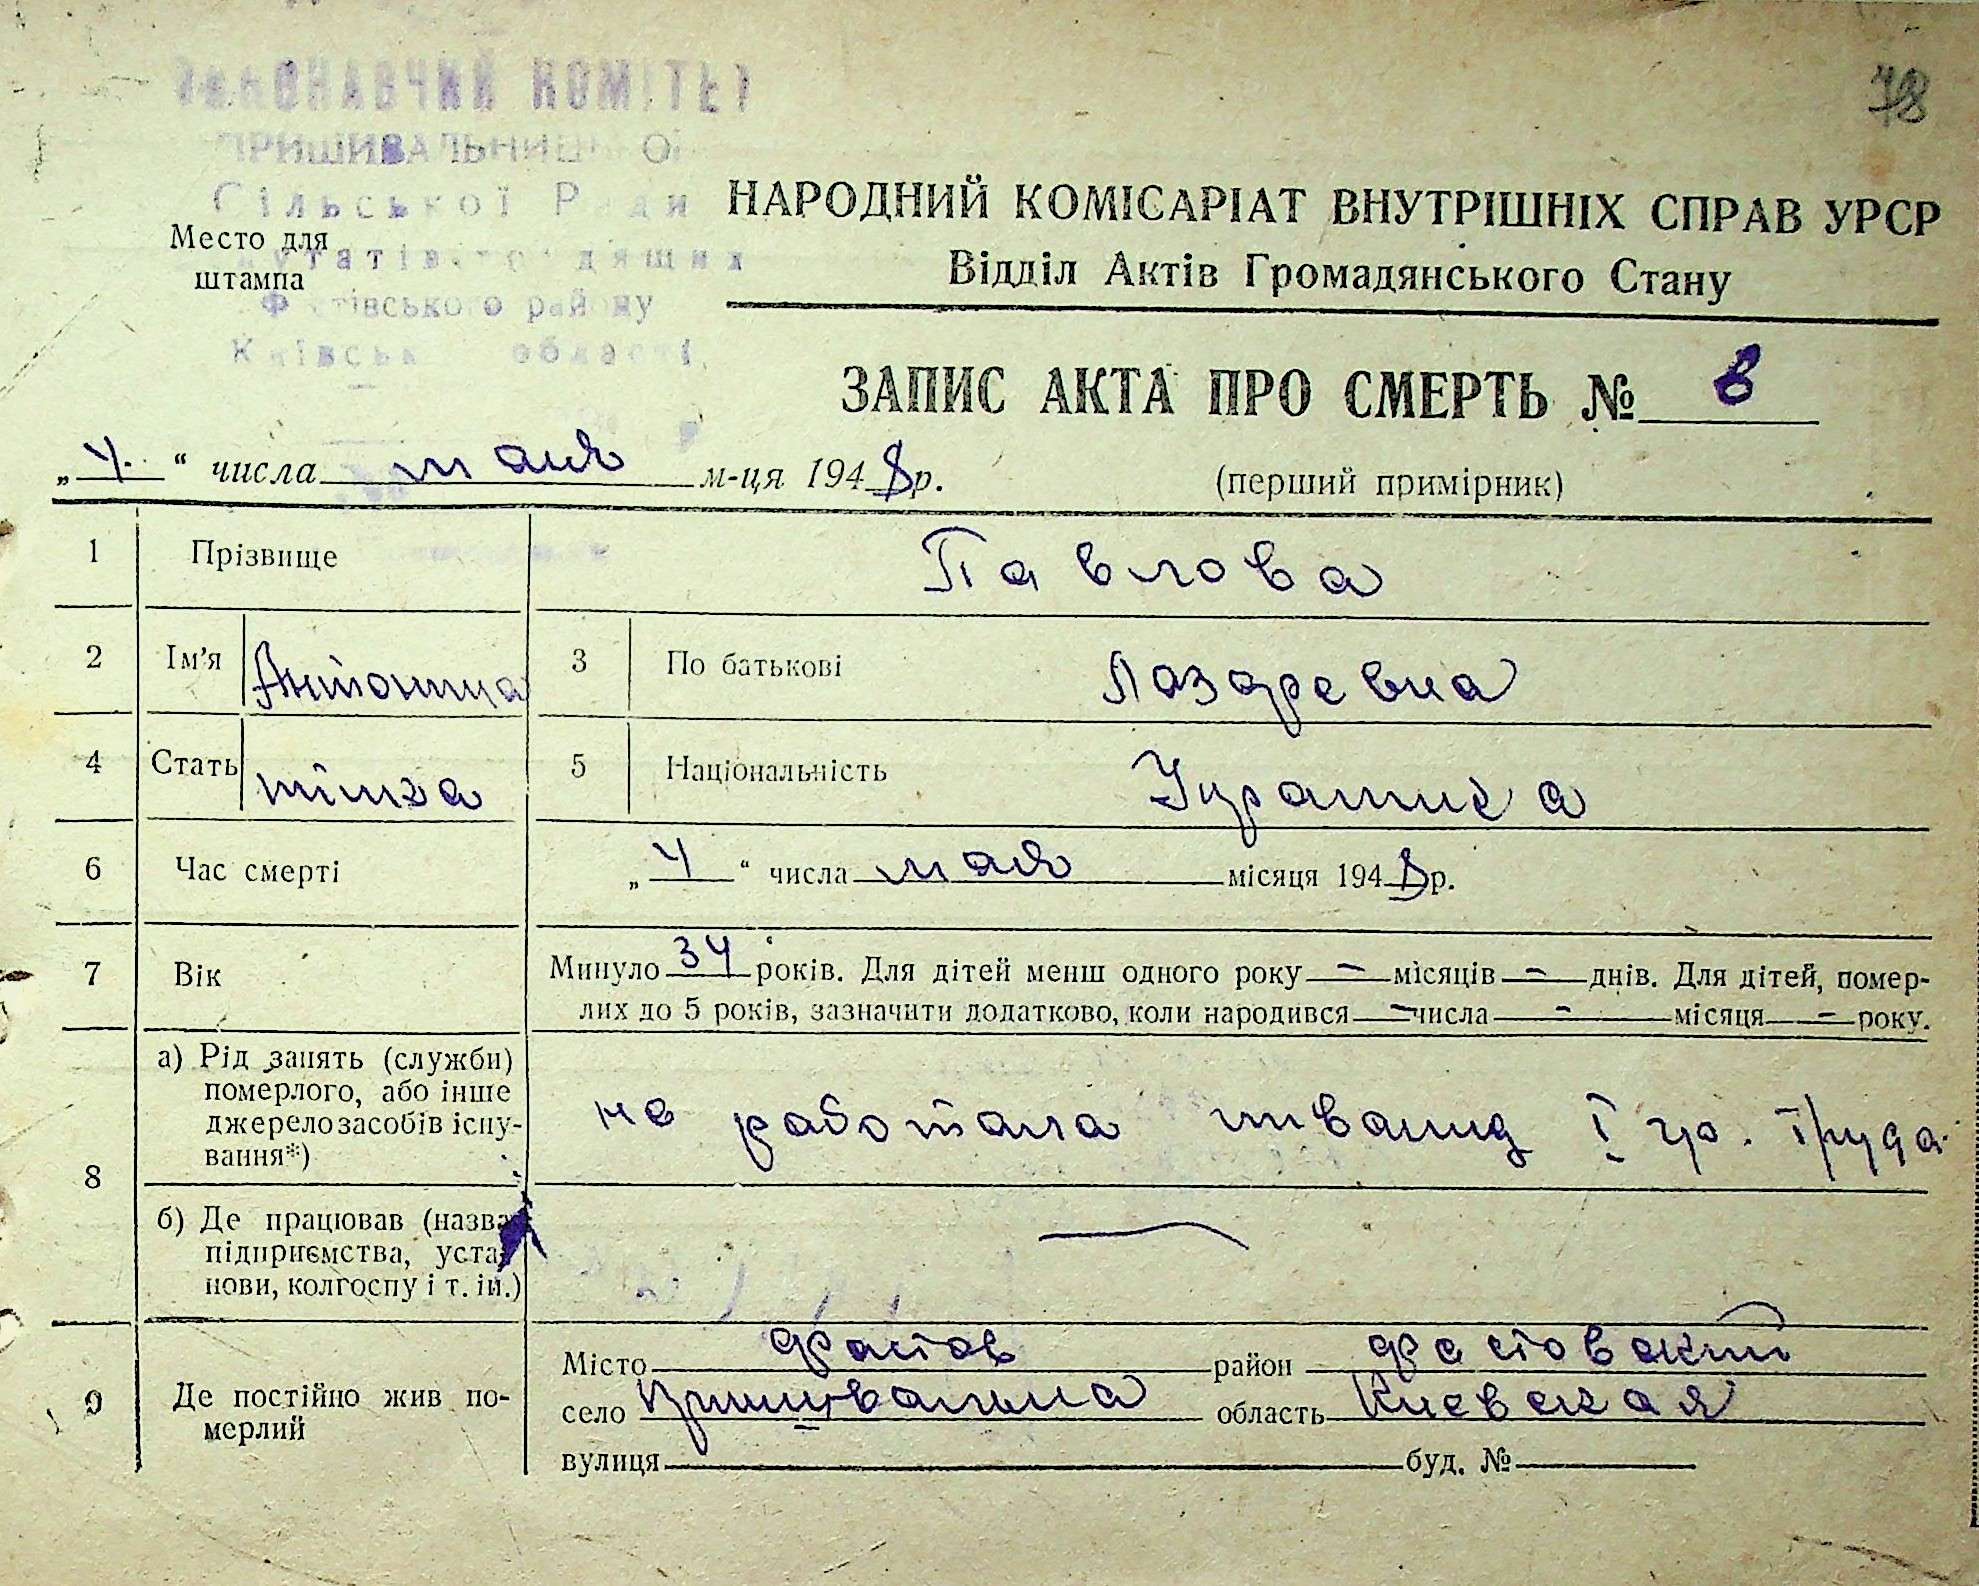 78
КОМІТЕТ
Сільської Ради
Фастівського району
Київськ області
Место для
штампа
НАРОДНИЙ КОМІСАРІАТ ВНУТРІШНІХ СПРАВ УРСР
Відділ Актів Громадянського Стану
ЗАПИС АКТА ПРО СМЕРТЬ № 8
„4“ числа мая м-ця 1948 р. (перший примірник)
1 Прізвище Павлова
2 Ім'я Антонина 3 По батькові Лазаревна
4 Стать жінка 5 Національність Украинка
6 Час смерті „4“ числа мая місяця 1948 р.
7 Вік Минуло 34 років. Для дітей менш одного року — місяців — днів. Для дітей, помер-
лих до 5 років, зазначити додатково, коли народився — числа — місяця — року.
8 а) Рід занять (служби)
померлого, або інше
джерело засобів існу-
вання*) не работала инвалид I гр. труда
б) Де працював (назва
підприємства, уста-
нови, колгоспу і т. ін.) —
9 Де постійно жив по-
мерлий
Місто Фастов район Фастовский
село Пришивальна область Киевская
вулиця буд. №